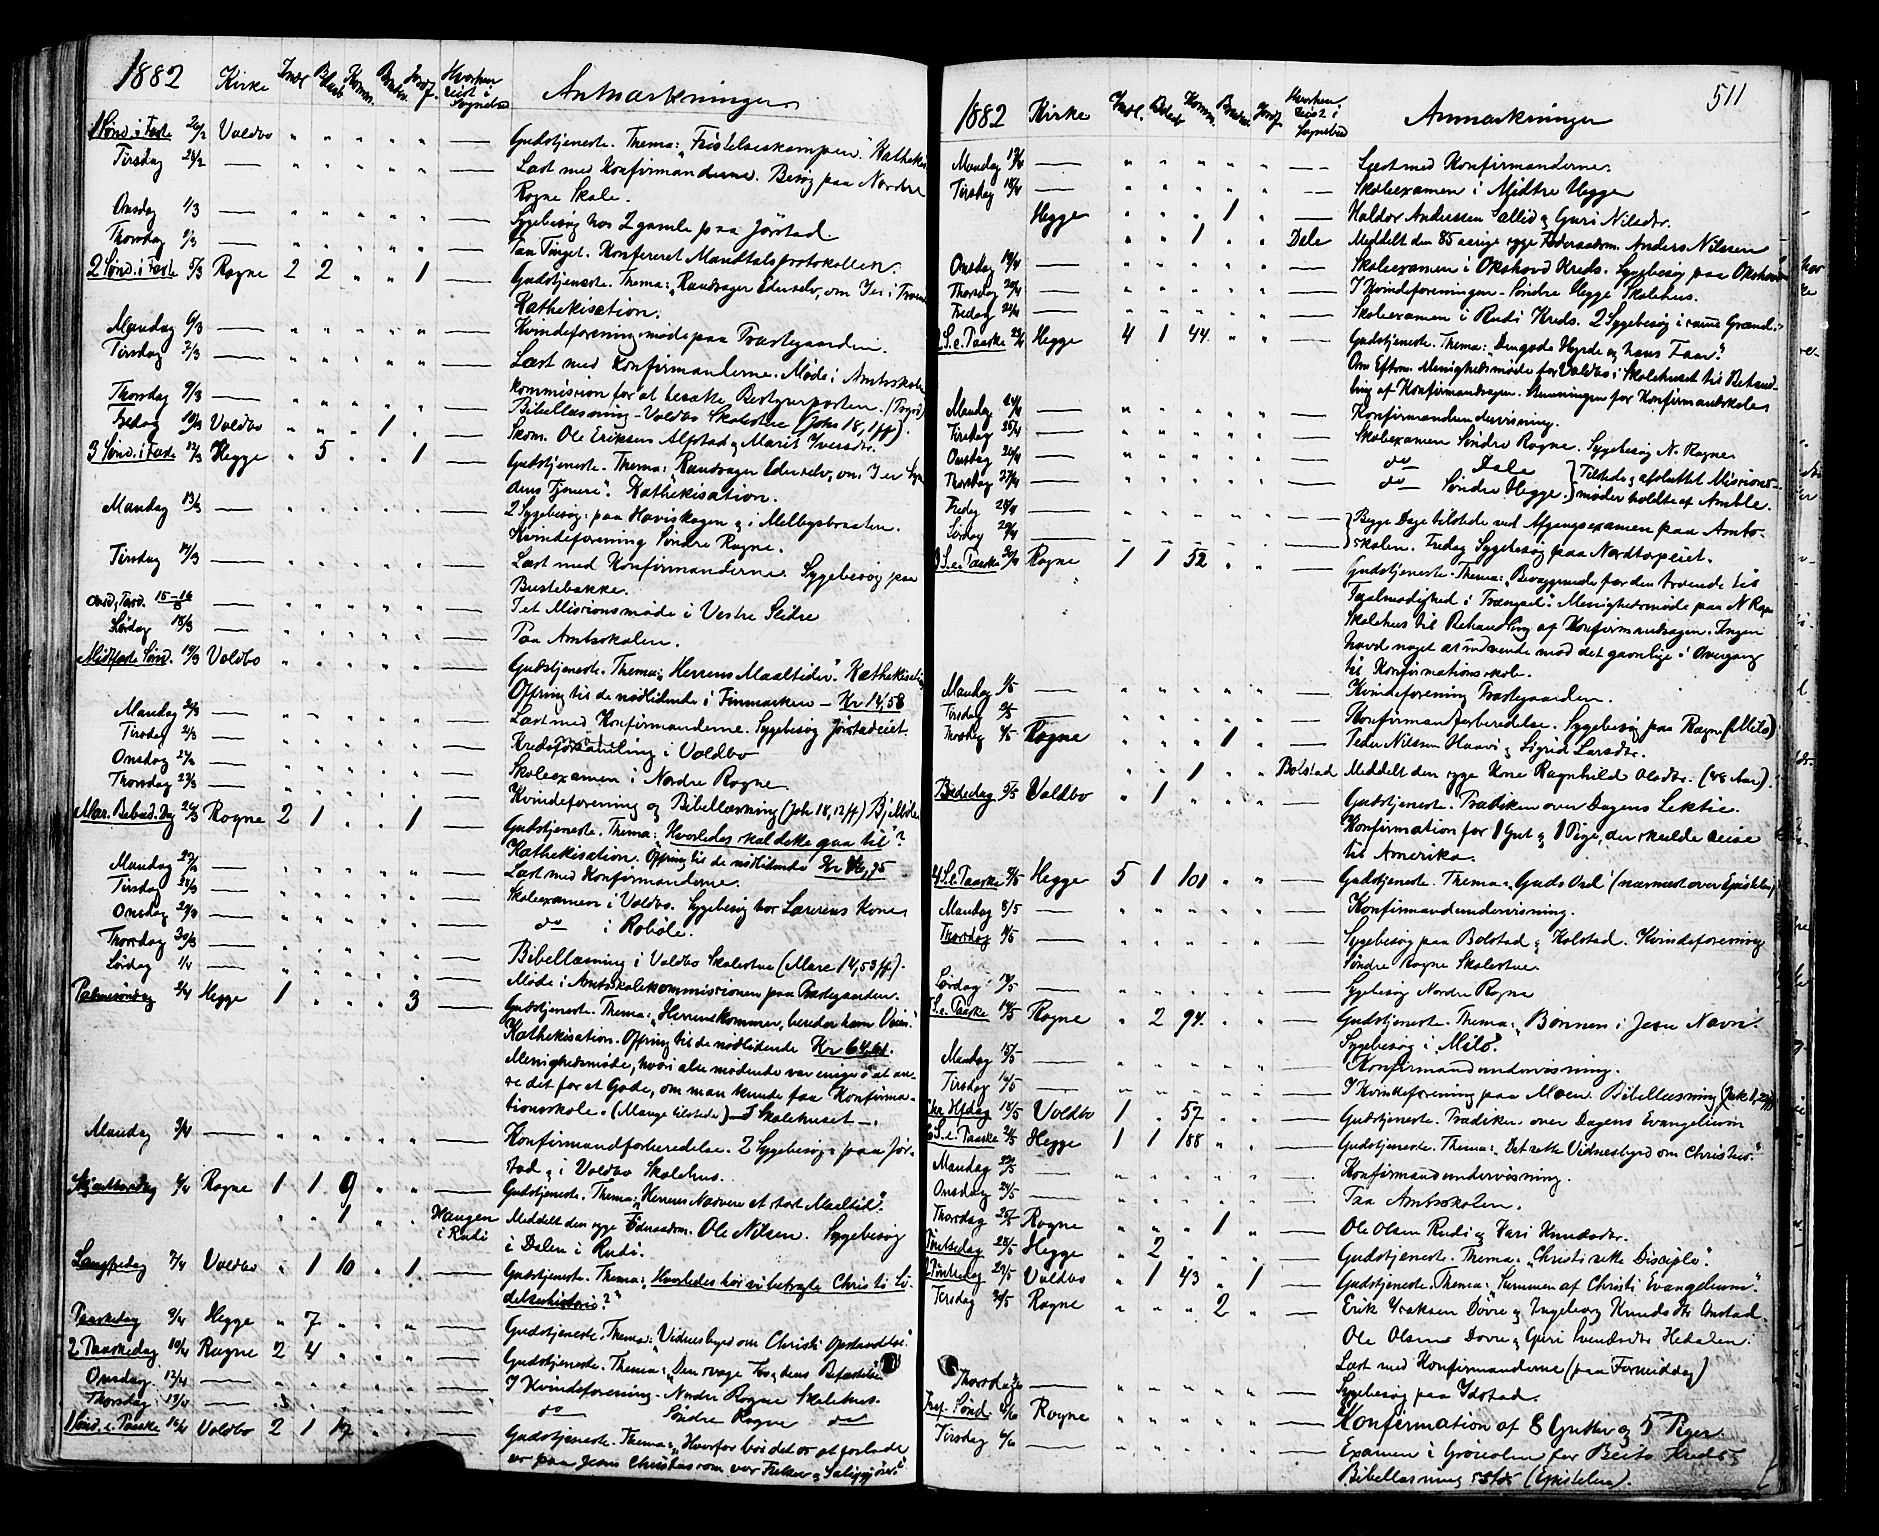 1882 Kirke Anmærkninger
1 Sønd. i Faste 26/2 Voldbo " " " " " — Gudstjeneste. Thema: „Fristelseskampen."
Tirsdag 28/2 — " " " " " — Læst med Konfirmanderne. Besøg paa Nordre
Rogne Skole.
Onsdag 1/3 — " " " " " — Sygebesøg hos 2 gamle paa Jørstad.
Thorsdag 2/3 — " " " " " — Paa Tinget. Konfereret Mandtalsprotokollen.
2 Sønd. i Faste 5/3 Rogne 2 2 " " 1 — Gudstjeneste. Thema:
Kathekisation.
Mandag 6/3 — " " " " " — Kvindeforeningsmøde paa Præstegaarden.
Tirsdag 7/3 — " " " " " — Læst med Konfirmanderne. Møde i Amtsskole
Thorsdag 9/3 — " " " " " — kommision for at besætte Bestyrerposten.
Bibellæsning - Voldbo Skolestue (Joh 18, 1 ff).
Fredag 10/3 Voldbo " " " 1 " — Skom. Ole Eriksen Alfstad & Marit Iversdr.
3 Sønd. i Faste 12/3 Hegge " 5 " " 1 — Gudstjeneste. Thema:
dens Tjenere". Kathekisation.
Mandag 13/3 — " " " " " — 2 Sygebesøg: paa Haviskagen & i Melbysbraaten.
Kvindeforening Søndre Rogne.
Tirsdag 14/3 — " " " " " — Læst med Konfirmanderne. Sygebesøg paa
Bustebakke.
15–16/3 — " " " " " — I et Missionsmøde i Vestre Slidre
Lørdag 18/3 — " " " " " — Paa Amtsskolen.
Midfaste Sønd. 19/3 Voldbo " " " " " — Gudstjeneste. Thema: „Herrens Maaltider".
Offring til de nødlidende i Finmarken — Kr 14,58
Mandag 20/3 — " " " " " — Læst med Konfirmanderne. Sygebesøg Jørstadeiet.
Tirsdag 21/3 — " " " " " — Kredsforhandling i Voldbo
Onsdag — " " " " " — Skoleexamen i Nordre Rogne
Thorsdag 23/3 — " " " " " — Kvindeforening og Bibellæsning (Joh 18, 12 ff)
Mar. Bebud. Dag Rogne 2 1 " " 1 — Gudstjeneste. Thema: „Hvorledes skal dette gaa til"?
Kathekisation. Offring til de nødlidende Kr
Mandag 27/3 — " " " " " — Læst med Konfirmanderne.
Tirsdag 28/3 — " " " " " — Skoleexamen i Voldbo. Sygebesøg hos Lærerens Kone
Onsdag 29/3 — " " " " " — do i Robøle.
Thorsdag 30/3 — " " " " " — Bibellæsning i Voldbo Skolestue (Marc 14, 53 ff).
Lørdag 1/4 — " " " " " — Møde i Amtsskolekommissionen paa Præstegaarden.
Palmesøndag 2/4 Hegge 1 " " " 3 — Gudstjeneste. Thema: „Herren kommer, bereder ham Veien".
Kathekisation. Offring til de nødlidende Kr
Menighedsmøde, hvori alle mødende var enige i at an-
se det for et Gode, om man kunde faa Konfirma-
tionsskole. (Mange tilstede) — I Skolehuset —.
Mandag 3/4 — " " " " " — Konfirmandforberedelse. 2 Sygebesøg: paa Jør-
stad & i Voldbo Skolehus.
Skjærthorsdag 6/4 Rogne 1 1 9 " " — Gudstjeneste. Thema: „Herrens Nadvere et stort Maaltid".
" " 1 " " Haugen i Rudi Meddelt den syge Føderaadsm. Ole Nilsen. Sygebesøg
i Dalen i Rudi.
Langfredag 7/4 Voldbo " 1 10 " 1 — Gudstjeneste. Thema: „Hvorledes bør vi betragte Christi Li-
delseshistorie?"
Paaskedag 9/4 Hegge " 7 " " " — Gudstjeneste. Thema: „Vidnesbyrd om Christi Opstandelse".
2 Paaskedag 10/4 Rogne 2 4 " " " — Gudstjeneste. Thema: „Den svage Tro & dens Befæstelse
Onsdag 12/4 — " " " " " — I Kvindeforening. Nordre Rogne Skolehus.
Thorsdag 13/4 — " " " " — do Søndre Rogne do
1 Sønd. e. Paaske 16/4 Voldbo 2 1 " " — Gudstjeneste. Thema: „Hvorfor bør det os at forlade
os paa Jesus Christus som vor Frelser & Saliggjører."
511
1882 Kirke Anmærkninger
Mandag 17/4 — " " " " " — Læst med Konfirmanderne.
Tirsdag 18/4 — " " " " " — Skoleexamen i Midtre Hegge
Hegge " " " 1 " — Haldor Andersen Sællid & Guri Nilsdr.
" " 1 " " Dele Meddelt den 85 aarige syge Føderaadsm. Anders Nilssen
Onsdag 19/4 — " " " " " — Skoleexamen i Okshovd Kreds. Sygebesøg paa Okshovd
Thorsdag 20/4 — " " " " " — I Kvindeforeningen - Søndre Hegge Skolehus.
Fredag 21/4 — " " " " " — Skoleexamen i Rudi Kreds. 2 Sygebesøg i samme Grænd.
2 S. e. Paaske 23/4 Hegge 4 1 44 " " — Gudstjeneste. Thema: „Den gode Hyrde og hans Faar".
Om Efterm. Menighedsmøde for Voldbo i Skolehuset til Behand-
ling af Konfirmandsagen. Stemningen for Konfirmandskolen
Mandag 24/4 — " " " " " — Konfirmandundervisning.
Tirsdag 25/4 — " " " " " — Skoleexamen Søndre Rogne. Sygebesøg N. Rogne
Onsdag 26/4 — " " " " " — do Dale
Thorsdag 27/4 — " " " " " — do Søndre Hegge. Tilstede & afsluttet Missions-
møder holdte af Amble.
Fredag 28/4 — " " " " " — Begge Dage tilstede ved Afgangsexamen paa Amts-
Lørdag 29/4 — " " " " " — skolen. Fredag Sygebesøg paa Nordtorpeiet.
3 S. e. Paaske 30/4 Rogne 1 1 52 " " — Gudstjeneste. Thema: „Bevæggrunde for den troende til
Taalmodighed i Trængsel". Menighedsmøde paa N Rogne
Skolehus til Behandling af Konfirmandsagen. Ingen
havde noget at indvende mod det gavnlige i Overgang
til Konfirmationsskole.
Mandag 1/5 — " " " " " — Kvindeforening Præstegaarden.
Tirsdag 2/5 — " " " " " — Konfirmandforberedelse. Sygebesøg paa Rogne (Milo)
Thorsdag 4/5 Rogne " " " 1 " — Peder Nilssen Haavi & Sigrid Larsdr.
" " 1 " " Bolstad Meddelt den syge Kone Ragnhild Olsdr.
Bededag 5/5 Voldbo " 1 " " " — Gudstjeneste. Prædiken over Dagens Lektie.
Konfirmation for 1 Gut & 1 Pige, der skulde reise
til Amerika.
4 S. e. Paaske 7/5 Hegge 5 1 101 " " — Gudstjeneste. Thema: „Guds Ord" (nærmest over Epistelen)
Mandag 8/5 — " " " " " — Konfirmandundervisning.
Thorsdag — " " " " " — Sygebesøg paa Bolstad & Kolstad. Kvindeforening
Søndre Rogne Skolestue.
Lørdag 13/5 — " " " " " — Sygebesøg Nordre Rogne
5 S. e. Paaske 14/5 Rogne " 2 94 " " — Gudstjeneste. Thema: „Bønnen i Jesu Navn".
Sygebesøg i Milo.
Mandag 15/5 — " " " " " — Konfirmandundervisning.
Tirsdag 16/5 — " " " " " — I Kvindeforening paa Moen. Bibellæsning
Chr. Hfdag 18/5 Voldbo 1 " 57 " " — Gudstjeneste. Prædiken over Dagens Evangelium
6 S. e. Paaske 21/5 Hegge 1 1 188 " " — Gudstjeneste. Thema: „Det rette Vidnesbyrd om Christus."
Mandag 22/5 — " " " " " — Konfirmandundervisning.
Onsdag 24/5 — " " " " " — Paa Amtsskolen.
Thorsdag 25/5 Rogne " " " 1 " — Ole Olsen Rudi & Kari Knudsdr.
Pintsedag 28/5 Hegge " 2 " " " — Gudstjeneste. Thema: „Christi rette Disciple".
2 Pintsedag 29/5 Voldbo " 1 43 " 1 — Gudstjeneste. Thema: „Summen af Christi Evangelium".
Tirsdag 30/5 Rogne " " " 2 " — Erik Iversen Dovre & Ingeborg Knudsdtr Onstad.
Ole Olsen Dovre & Guri Svendsdtr Hedalen.
Læst med Konfirmanderne (paa Formiddag)
Thorsdag — " " " " " — Sygebesøg paa Ydstad.
Tref. Sønd. 4/6 Rogne " " " " " — Konfirmation af 8 Gutter og 5 Piger.
Tirsdag 6/6 — " " " " " — Examen i Grøvolen for Beito Kreds
Bibellæsning (Epistelen).